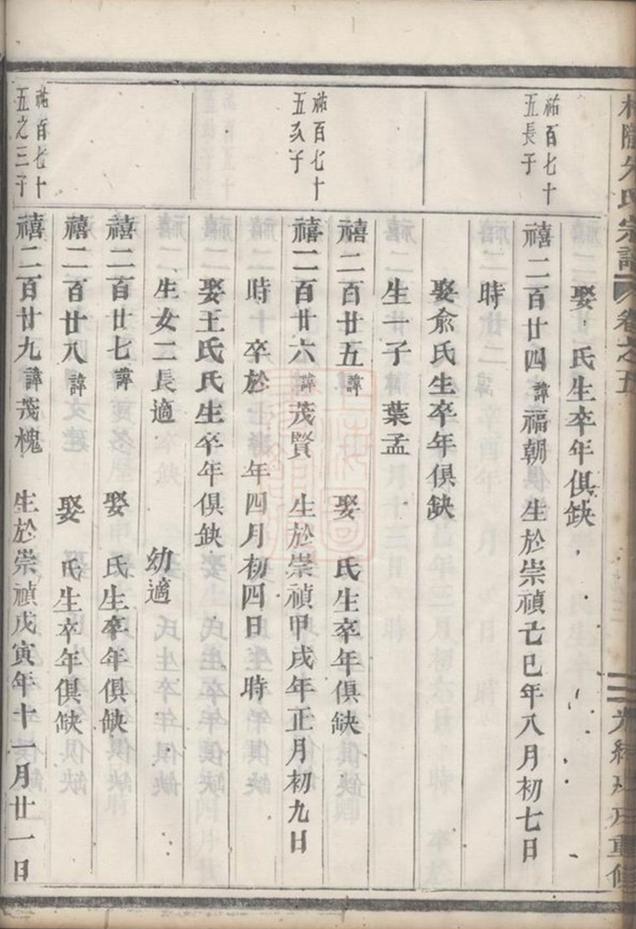 氏宗譜 卷之五 光緒 重修
娶 氏生卒年俱缺
祐百七十
五長子
禧二百廿四諱福朝 生於崇禎己巳年八月初七日
時
娶俞氏生卒年俱缺
生一子 葉孟
禧二百廿五諱 娶 氏生卒年俱缺
祐百七十
五次子
禧二百廿六諱茂賢 生於崇禎甲戌年正月初九日
時 卒於 年四月初四日 時
娶王氏氏生卒年俱缺
生女二長適 幼適
禧二百廿七諱 娶 氏生卒年俱缺
禧二百廿八諱 娶 氏生卒年俱缺
祐百七十
五之三子
禧二百廿九諱茂槐 生於崇禎戊寅年十一月廿一日